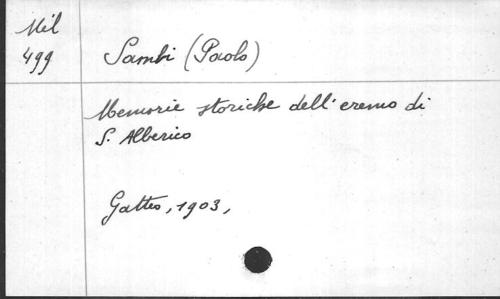 Mil
499
Sambi (Paolo)
Memorie storiche dell'eremo di
S. Alberico
Gatteo, 1903,